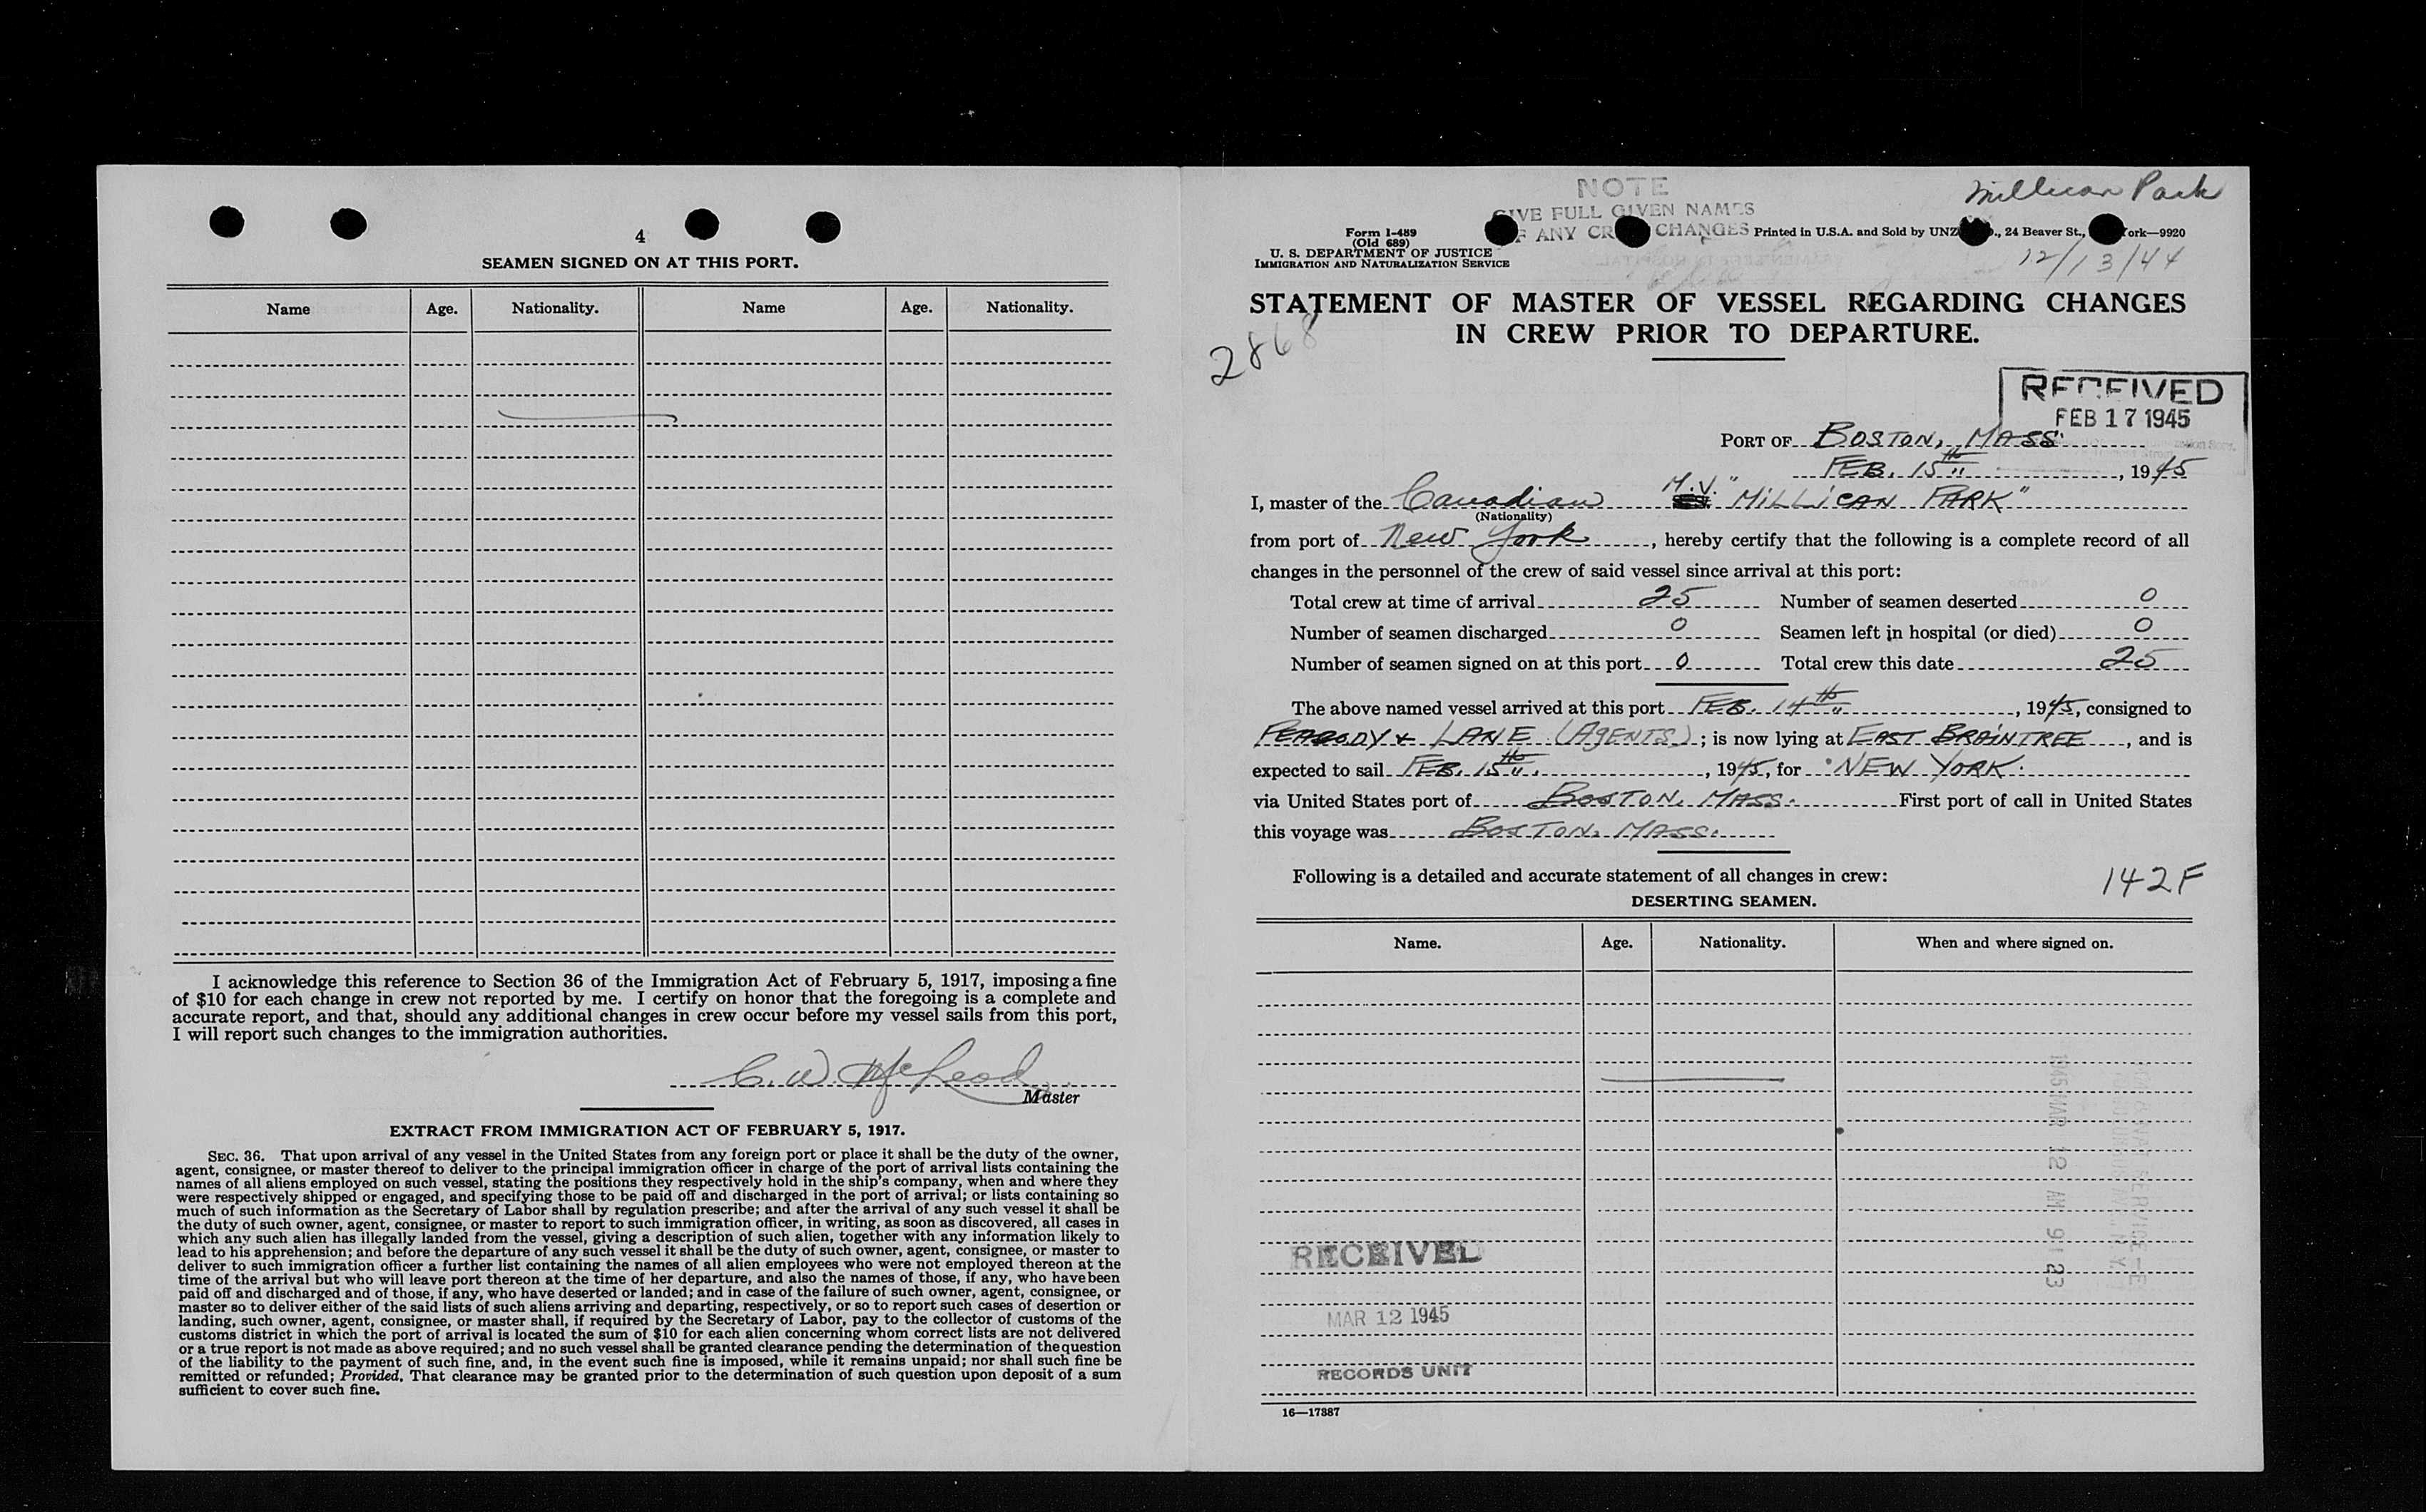 4
SEAMEN SIGNED ON AT THIS PORT.
Name Age. Nationality. Name Age. Nationality.
I acknowledge this reference to Section 36 of the Immigration Act of February 5, 1917, imposing a fine
of $10 for each change in crew not reported by me. I certify on honor that the foregoing is a complete and
accurate report, and that, should any additional changes in crew occur before my vessel sails from this port,
I will report such changes to the immigration authorities.
C. W. McLeod
Master
EXTRACT FROM IMMIGRATION ACT OF FEBRUARY 5, 1917.
SEC. 36. That upon arrival of any vessel in the United States from any foreign port or place it shall be the duty of the owner,
agent, consignee, or master thereof to deliver to the principal immigration officer in charge of the port of arrival lists containing the
names of all aliens employed on such vessel, stating the positions they respectively hold in the ship's company, when and where they
were respectively shipped or engaged, and specifying those to be paid off and discharged in the port of arrival; or lists containing so
much of such information as the Secretary of Labor shall by regulation prescribe; and after the arrival of any such vessel it shall be
the duty of such owner, agent, consignee, or master to report to such immigration officer, in writing, as soon as discovered, all cases in
which any such alien has illegally landed from the vessel, giving a description of such alien, together with any information likely to
lead to his apprehension; and before the departure of any such vessel it shall be the duty of such owner, agent, consignee, or master to
deliver to such immigration officer a further list containing the names of all alien employees who were not employed thereon at the
time of the arrival but who will leave port thereon at the time of her departure, and also the names of those, if any, who have been
paid off and discharged and of those, if any, who have deserted or landed; and in case of the failure of such owner, agent, consignee, or
master so to deliver either of the said lists of such aliens arriving and departing, respectively, or so to report such cases of desertion or
landing, such owner, agent, consignee, or master shall, if required by the Secretary of Labor, pay to the collector of customs of the
customs district in which the port of arrival is located the sum of $10 for each alien concerning whom correct lists are not delivered
or a true report is not made as above required; and no such vessel shall be granted clearance pending the determination of the question
of the liability to the payment of such fine, and, in the event such fine is imposed, while it remains unpaid; nor shall such fine be
remitted or refunded; Provided, That clearance may be granted prior to the determination of such question upon deposit of a sum
sufficient to cover such fine.
Millican Park
NOTE
GIVE FULL GIVEN NAMES
ANY CHANGES
Form I-489
(Old 689)
U. S. DEPARTMENT OF JUSTICE
IMMIGRATION AND NATURALIZATION SERVICE
Printed in U.S.A. and Sold by 24 Beaver St., ork—9920
12/13/44
STATEMENT OF MASTER OF VESSEL REGARDING CHANGES
IN CREW PRIOR TO DEPARTURE.
2868
RECEIVED
FEB 17 1945
PORT OF BOSTON, MASS.
FEB. 15th, 1945
I, master of the Canadian M.V. "MILLICAN PARK"
(Nationality)
from port of New York, hereby certify that the following is a complete record of all
changes in the personnel of the crew of said vessel since arrival at this port:
Total crew at time of arrival 25 Number of seamen deserted 0
Number of seamen discharged 0 Seamen left in hospital (or died) 0
Number of seamen signed on at this port 0 Total crew this date 25
The above named vessel arrived at this port FEB. 14th, 1945, consigned to
PEABODY & LANE (AGENTS); is now lying at EAST BRAINTREE, and is
expected to sail FEB. 15th, 1945, for NEW YORK.
via United States port of BOSTON, MASS. First port of call in United States
this voyage was BOSTON, MASS.
Following is a detailed and accurate statement of all changes in crew:
142F
DESERTING SEAMEN.
Name. Age. Nationality. When and where signed on.
1945 MAR 12 AM 9:23
RECEIVED
MAR 12 1945
RECORDS UNIT
16—17887